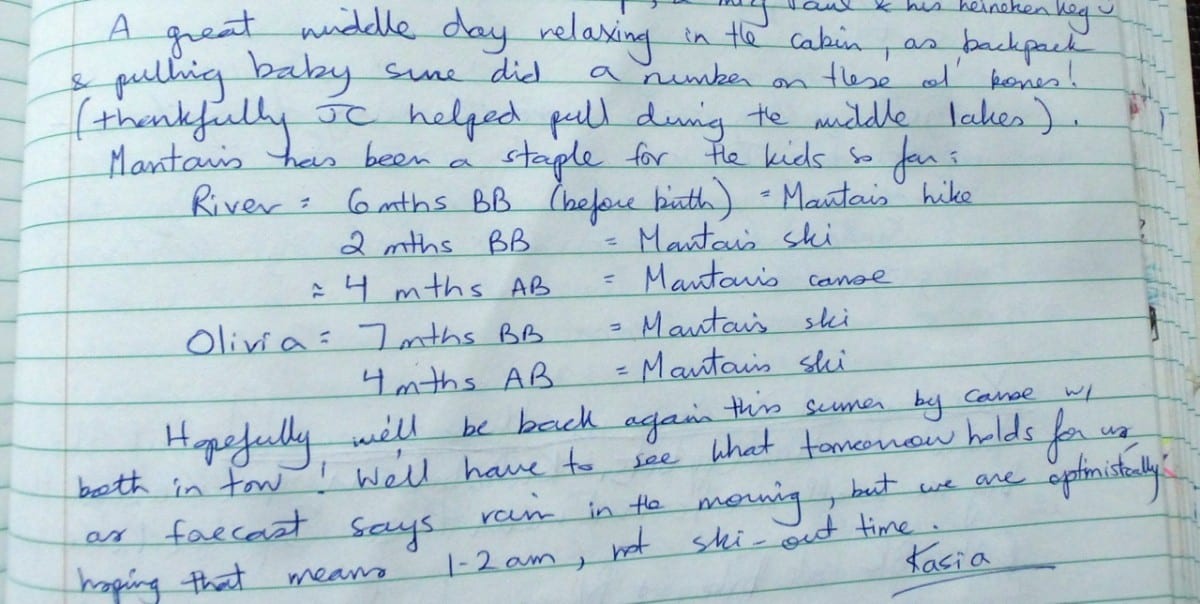 Paul & his heineken keg
A great middle day relaxing in the cabin, as backpack
& pulling baby sure did a number on these ol' bones!
(thankfully JC helped pull during the middle lakes).
Mantario has been a staple for the kids so far:
River = 6 mths BB (before birth) = Mantario hike
2 mths BB = Mantario ski
≈ 4 mths AB = Mantario canoe
Olivia = 7 mths BB = Mantario ski
4 mths AB = Mantario ski
Hopefully we'll be back again this summer by canoe w/
both in tow! We'll have to see what tomorrow holds for us
as forecast says rain in the morning, but we are optimistically
hoping that means 1-2 am, not ski-out time.
Kasia